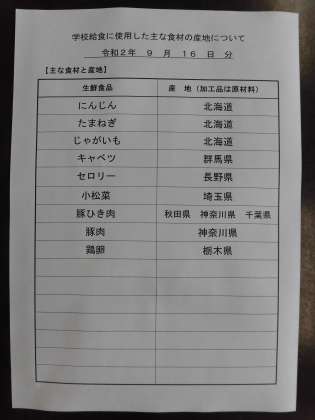 学校給食に使用した主な食材の産地について
令和２年 ９ 月 １６ 日 分
【主な食材と産地】
生鮮食品 産 地（加工品は原材料）
にんじん 北海道
たまねぎ 北海道
じゃがいも 北海道
キャベツ 群馬県
セロリー 長野県
小松菜 埼玉県
豚ひき肉 秋田県 神奈川県 千葉県
豚肉 神奈川県
鶏卵 栃木県